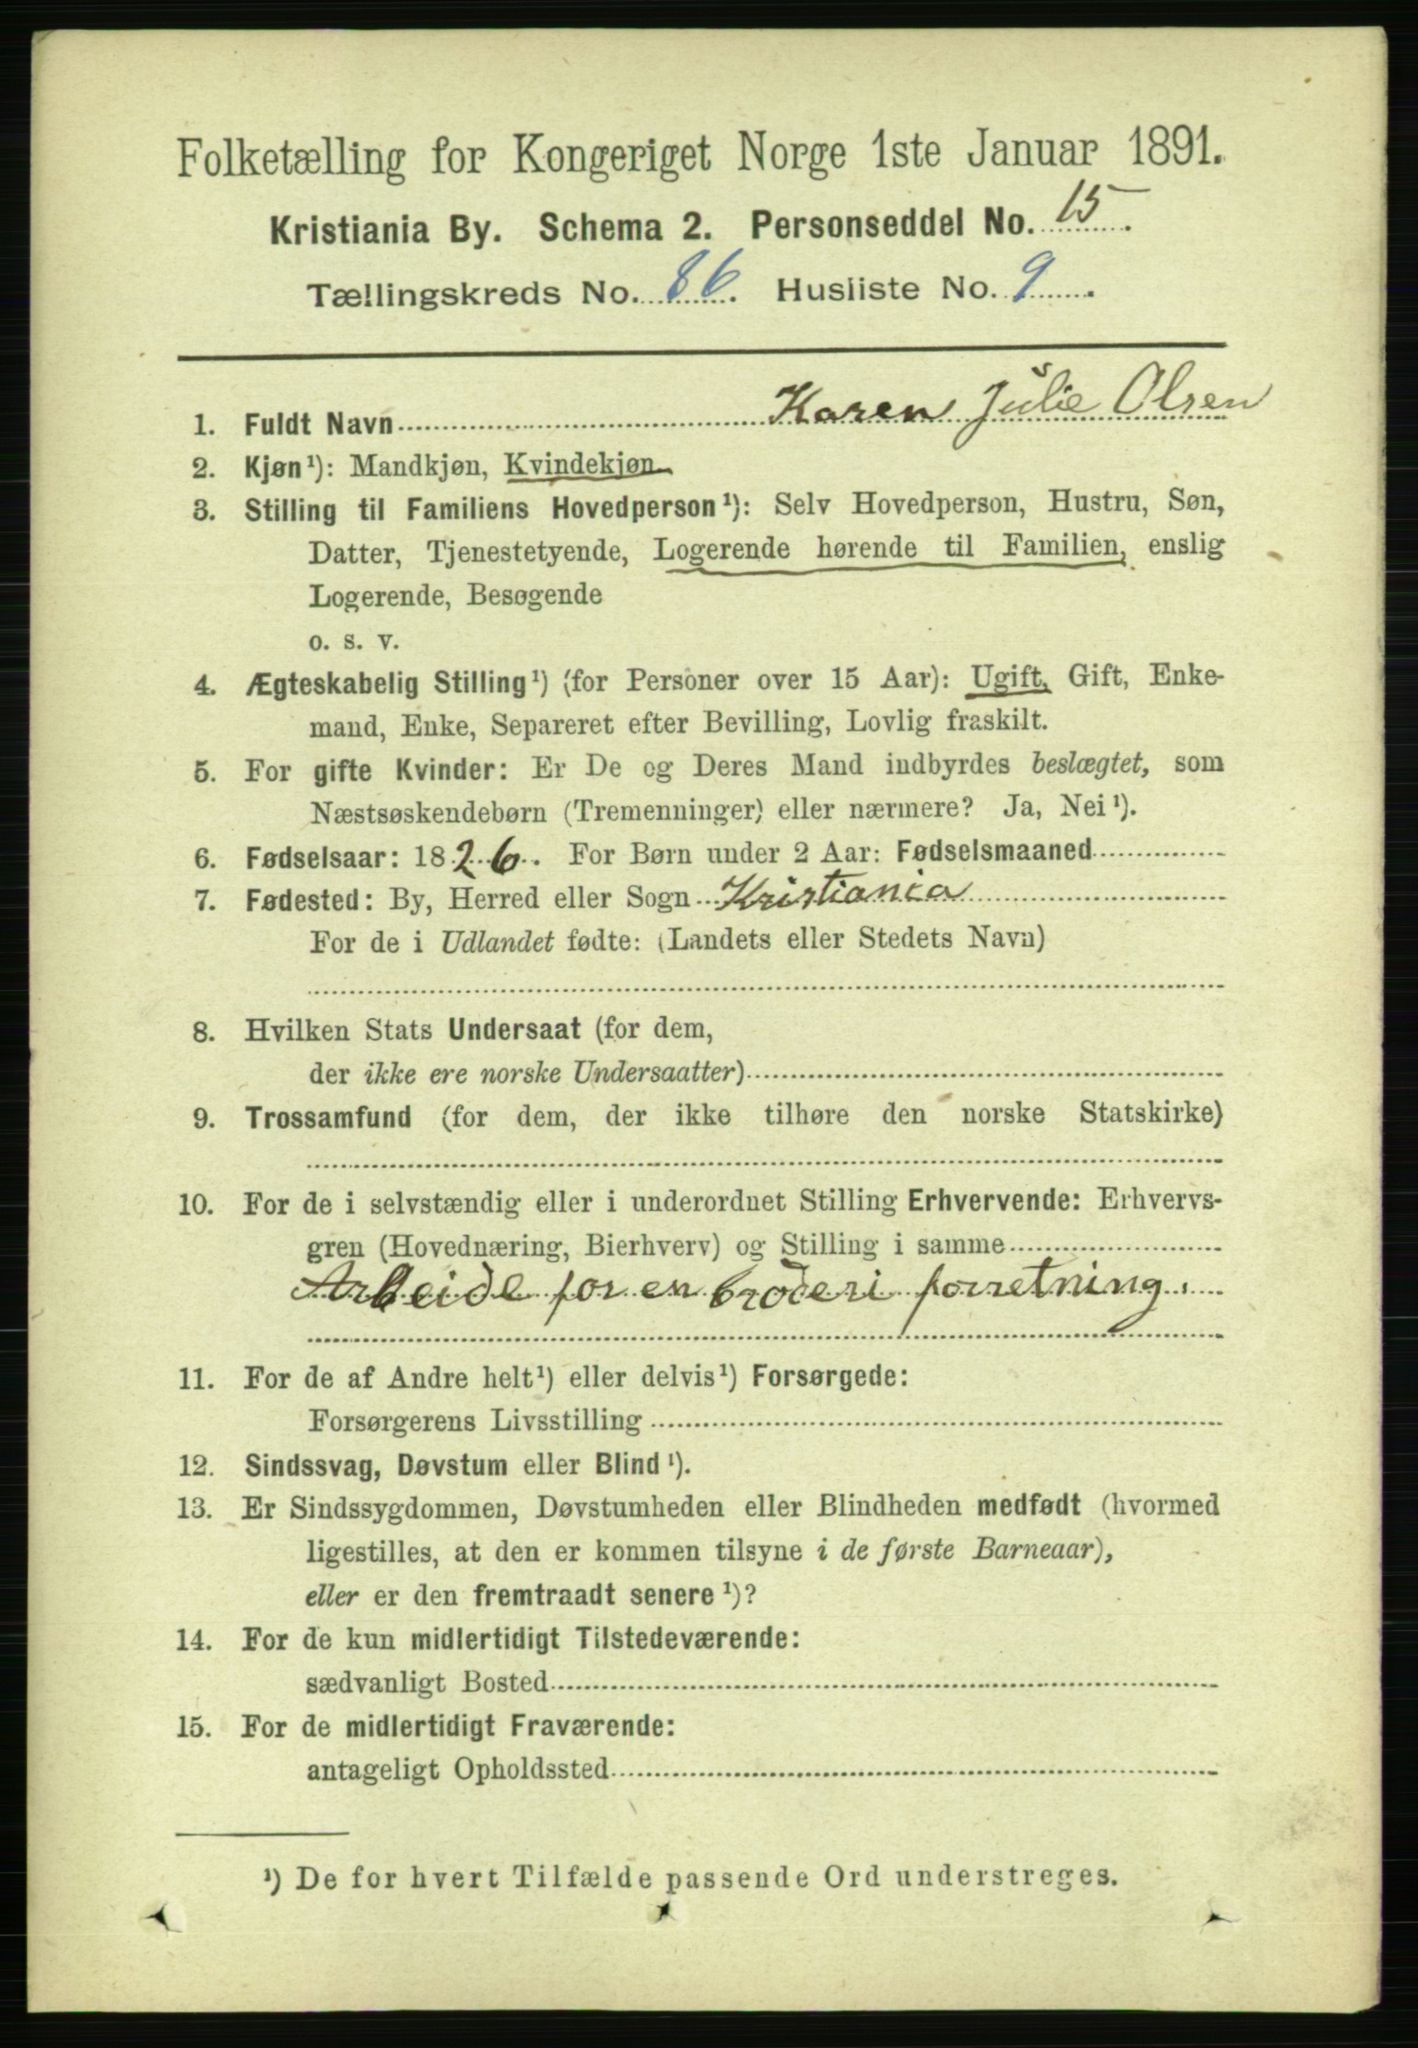 Folketælling for Kongeriget Norge 1ste Januar 1891.
Kristiania By. Schema 2. Personseddel No. 15.
Tællingskreds No. 86. Husliste No. 9.
1. Fuldt Navn Karen Julie Olsen
2. Kjøn¹): Mandkjøn, Kvindekjøn.
3. Stilling til Familiens Hovedperson¹): Selv Hovedperson, Hustru, Søn,
Datter, Tjenestetyende, Logerende hørende til Familien, enslig
Logerende, Besøgende
o. s. v.
4. Ægteskabelig Stilling¹) (for Personer over 15 Aar): Ugift, Gift, Enke-
mand, Enke, Separeret efter Bevilling, Lovlig fraskilt.
5. For gifte Kvinder: Er De og Deres Mand indbyrdes beslægtet, som
Næstsøskendebørn (Tremenninger) eller nærmere? Ja, Nei¹).
6. Fødselsaar: 1826. For Børn under 2 Aar: Fødselsmaaned
7. Fødested: By, Herred eller Sogn Kristiania
For de i Udlandet fødte: (Landets eller Stedets Navn)
8. Hvilken Stats Undersaat (for dem,
der ikke ere norske Undersaatter)
9. Trossamfund (for dem, der ikke tilhøre den norske Statskirke)
10. For de i selvstændig eller i underordnet Stilling Erhvervende: Erhvervs-
gren (Hovednæring, Bierhverv) og Stilling i samme
Arbeide for en broderi forretning.
11. For de af Andre helt¹) eller delvis¹) Forsørgede:
Forsørgerens Livsstilling
12. Sindssvag, Døvstum eller Blind¹).
13. Er Sindssygdommen, Døvstumheden eller Blindheden medfødt (hvormed
ligestilles, at den er kommen tilsyne i de første Barneaar),
eller er den fremtraadt senere¹)?
14. For de kun midlertidigt Tilstedeværende:
sædvanligt Bosted
15. For de midlertidigt Fraværende:
antageligt Opholdssted
¹) De for hvert Tilfælde passende Ord understreges.